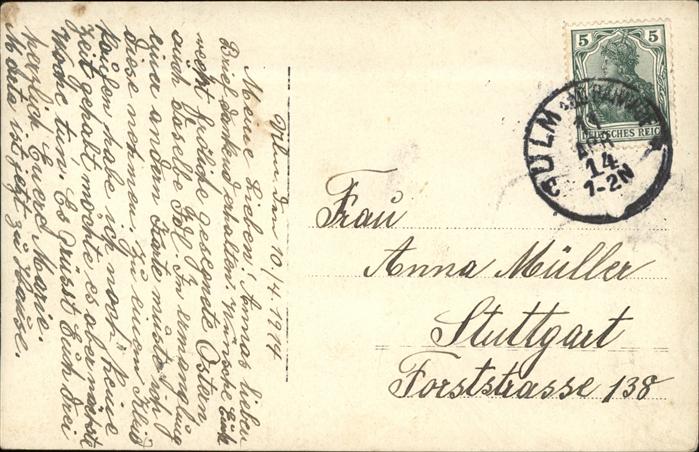 Ulm den 10/4. 1914
Meine Lieben! Annas lieben
Brief dankend erhalten. Wünsche Euch
recht fröhliche gesegnete Ostern,
auch dasselbe Fol. In ermanglung
einer andern Karte musste ich
diese nehmen. Zu einem Kleid
kaufen habe ich noch keine
Zeit gehabt, möchte es aber nächste
Woche tun. Es grüsst Euch drei
herzlich Euere Marie.
ist jetzt zu Hause.
5 5
DEUTSCHES REICH
ULM
11
APR
14
1-2N
Frau
Anna Müller
Stuttgart
Forststrasse 138